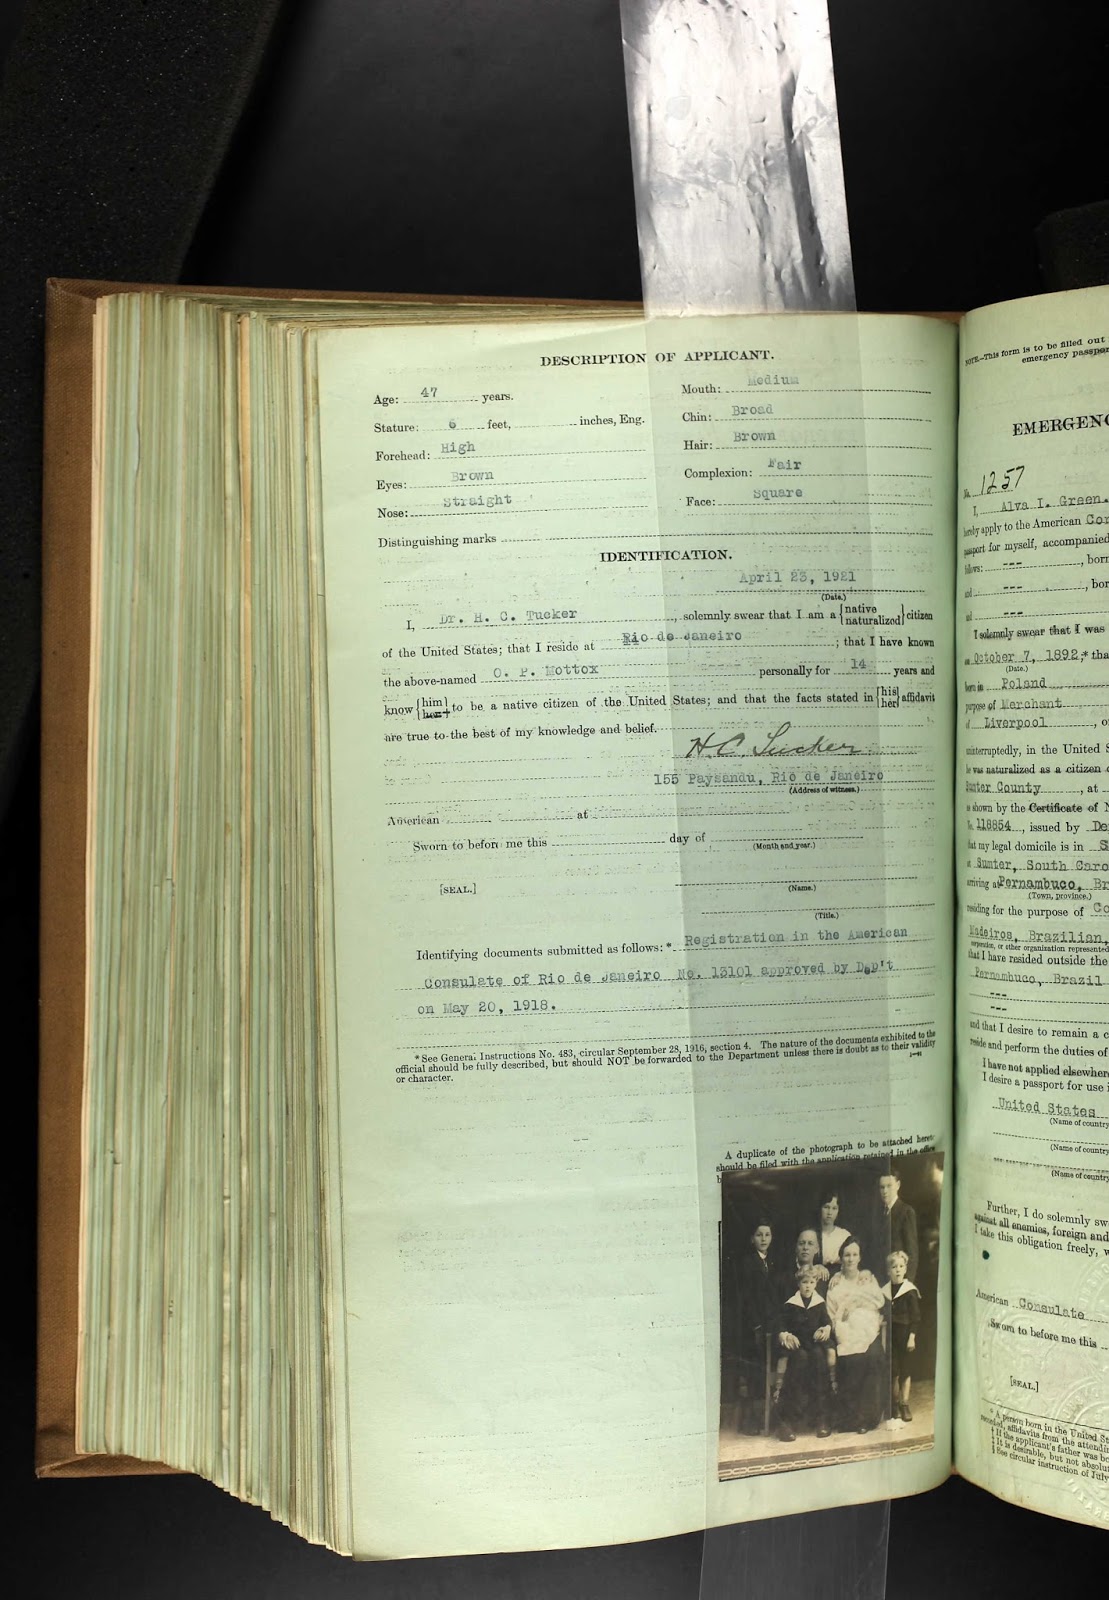 DESCRIPTION OF APPLICANT.
Age: 47 years.
Stature: 6 feet, inches, Eng.
Forehead: High
Eyes: Brown
Nose: Straight
Mouth: Medium
Chin: Broad
Hair: Brown
Complexion: Fair
Face: Square
Distinguishing marks
IDENTIFICATION.
April 23, 1921
(Date.)
I, Dr. H. C. Tucker, solemnly swear that I am a {native naturalized} citizen
of the United States; that I reside at Rio de Janeiro; that I have known
the above-named O. P. Mottox personally for 14 years and
know {him her} to be a native citizen of the United States; and that the facts stated in {his her} affidavit
are true to the best of my knowledge and belief.
H. C. Tucker
155 Paysandu, Rio de Janeiro
(Address of witness.)
American at
Sworn to before me this day of
(Month and year.)
[SEAL.]
(Name.)
(Title.)
Identifying documents submitted as follows:* Registration in the American
Consulate of Rio de Janeiro No. 13101 approved by Dep't
on May 20, 1918.
*See General Instructions No. 483, circular September 28, 1916, section 4. The nature of the documents exhibited to the
official should be fully described, but should NOT be forwarded to the Department unless there is doubt as to their validity
or character.
A duplicate of the photograph to be attached
should be filed with the application retained in the office
NOTE.—This form is to be filled out
emergency
EMERGENC
No. 1257
I, Alva I. Green.
hereby apply to the American Con
passport for myself, accompanied
follows: ---, born
and ---, bor
and ---
I solemnly swear that I was
on October 7, 1892;* tha
(Date.)
born in Poland
purpose of Merchant
of Liverpool, o
uninterruptedly, in the United S
he was naturalized as a citizen o
Sumter County, at
as shown by the Certificate of N
No. 118854, issued by De
that my legal domicile is in S
at Sumter, South Caro
arriving at Pernambuco, Br
(Town, province.)
residing for the purpose of Co
Madeiros, Brazilian,
corporation, or other organization represented
that I have resided outside the
Pernambuco, Brazil
---
---
and that I desire to remain a c
reside and perform the duties of
I have not applied elsewhere
I desire a passport for use i
United States
(Name of country
(Name of country
(Name of country
Further, I do solemnly sw
against all enemies, foreign and
I take this obligation freely, w
American Consulate
Sworn to before me this
[SEAL.]
* A person born in the United St
affidavits from the attendin
† If the applicant's father was bo
‡ It is desirable, but not absolut
§ See circular instruction of July